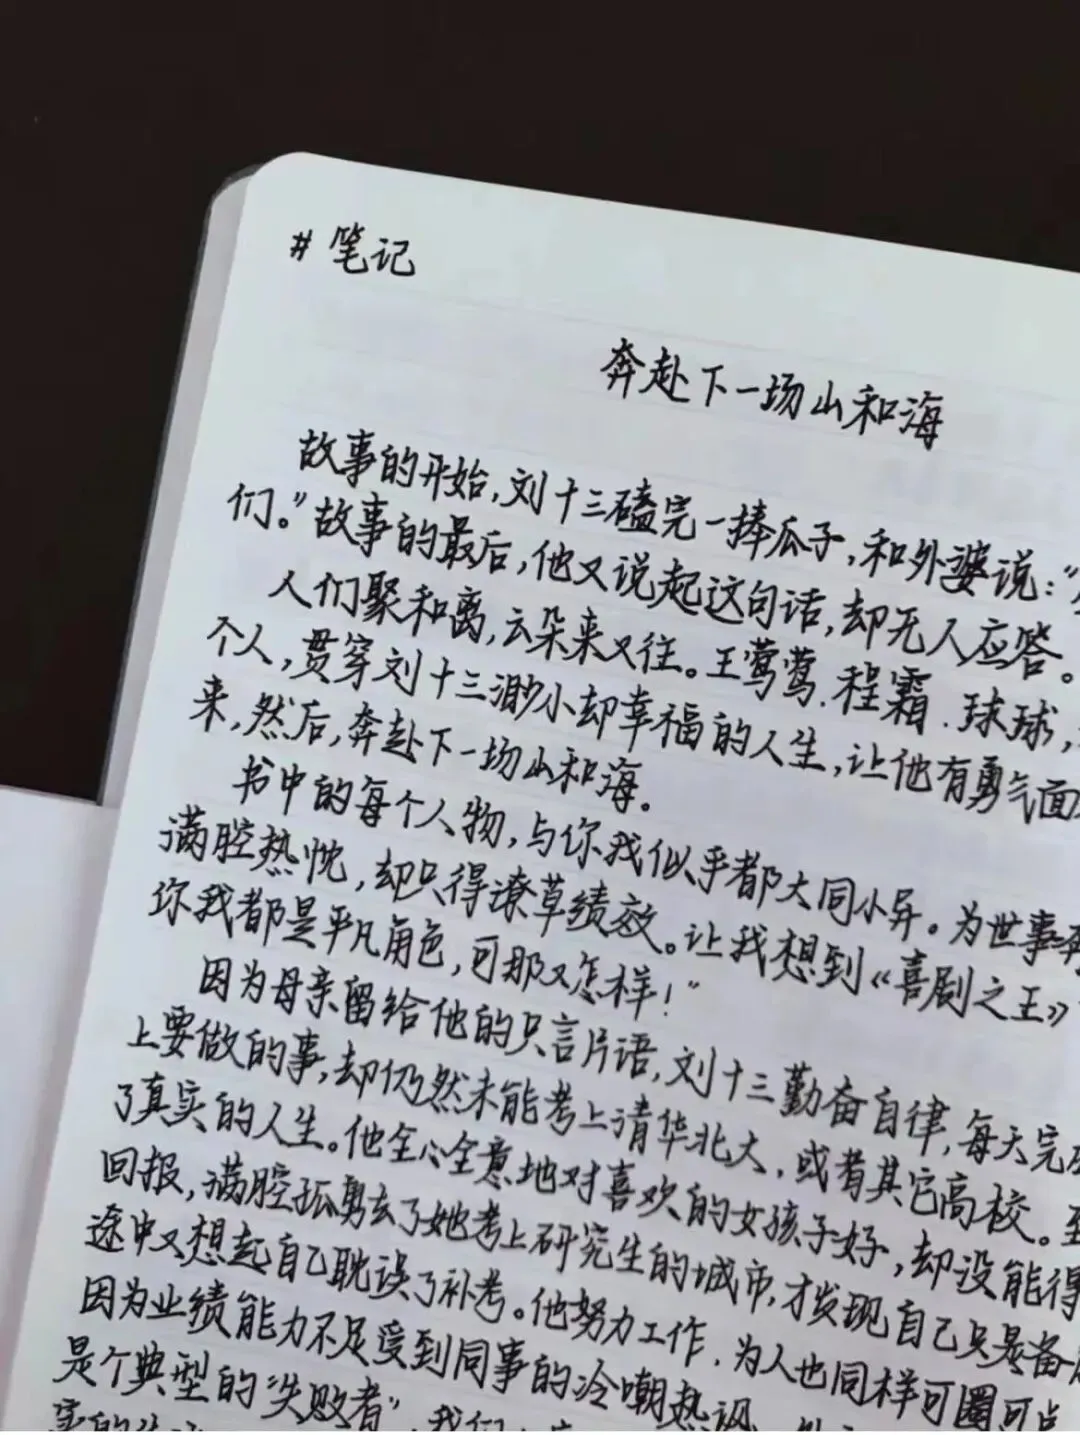 #笔记
奔赴下一场山和海
故事的开始，刘十三磕完一捧瓜子，和外婆说：“
们。”故事的最后，他又说起这句话，却无人应答。
人们聚和离，云朵来又往。王莺莺.程霜.球球，
个人，贯穿刘十三渺小却幸福的人生，让他有勇气面
来，然后，奔赴下一场山和海。
书中的每个人物，与你我似乎都大同小异。为世事
满腔热忱，却只得潦草绩效。让我想到《喜剧之王》
你我都是平凡角色，可那又怎样！”
因为母亲留给他的只言片语，刘十三勤奋自律，每天完
上要做的事，却仍然未能考上清华北大，或者其它高校。
了真实的人生。他全心全意地对喜欢的女孩子好，却没能得
回报，满腔孤勇去了她考上研究生的城市，才发现自己只是备
途中又想起自己耽误了补考。他努力工作，为人也同样可圈可点
因为业绩能力不足受到同事的冷嘲热讽
是个典型的“失败者”，我们